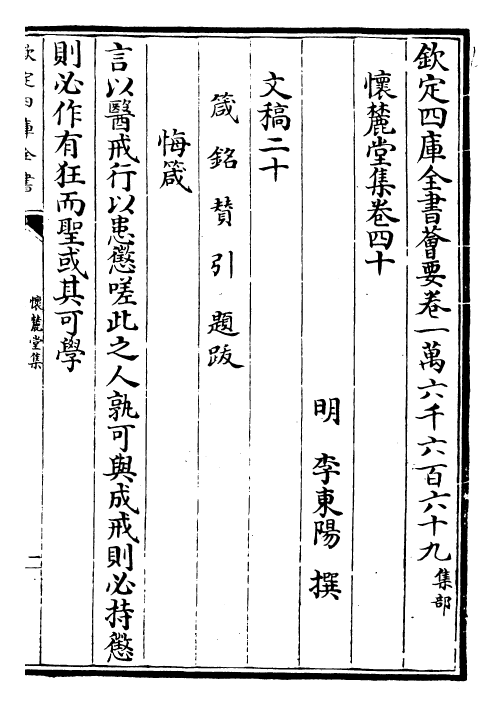 欽定四庫全書薈要卷一萬六千六百六十九集部
懷麓堂集卷四十
明李東陽撰
文稿二十
箴銘贊引題跋
悔箴
言以醫戒行以患懲嗟此之人孰可與成戒則必持懲
則必作有狂而聖或其可學
欽定四庫全書
懷麓堂集